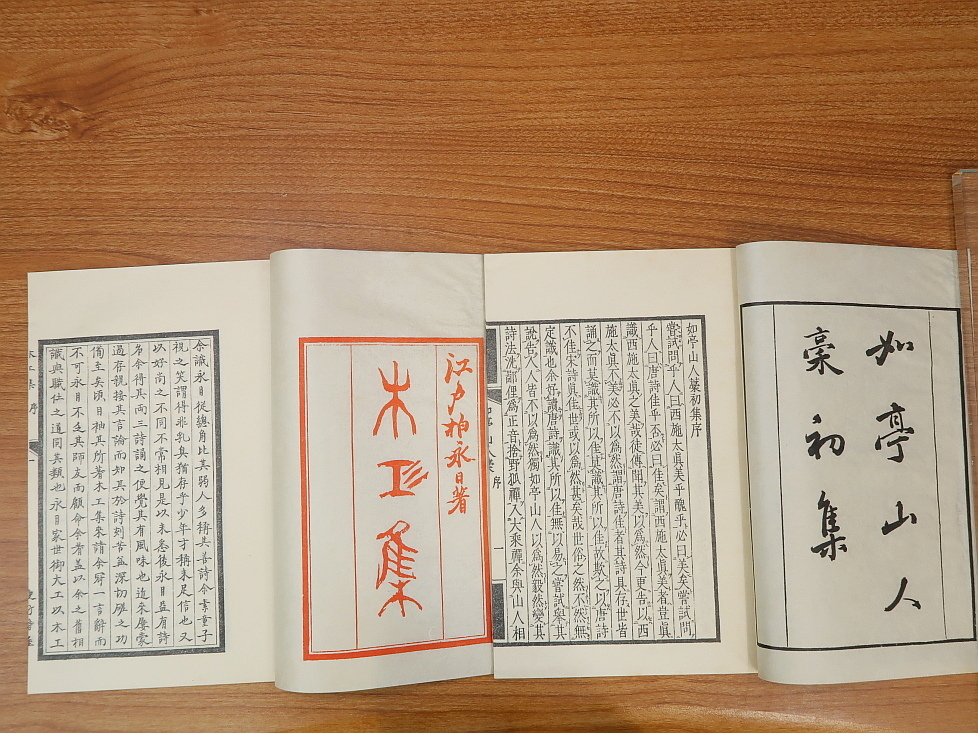 如亭山人
藳初集
如亭山人藳初集序
嘗試問乎人曰西施太眞美乎醜乎必曰美矣嘗試問
乎人曰唐詩佳乎否必曰佳矣謂西施太眞美者豈眞
識西施太眞之美哉徒傳聞其美以爲然今更告以西
施太眞不美必不以爲然謂唐詩佳者其詩具存世皆
誦之而莫識其所以佳其識其所以佳故欺之以唐詩
不佳宋詩眞佳世或以爲然甚矣哉世俗之然不然無
定識也余好讀唐詩識其所以佳無以易之嘗試舉其
說告人人皆不以爲然獨如亭山人以爲然毅然變其
詩法洗鄙俚爲正音捨野狐禪入大乘禪余與山人相
序
一
江戶柏永日著
木工集
余識永日從總角比其弱人多稱其善詩余素童子
視之笑謂得非乳臭猶存乎少年才稱未足信也又
以好尚之不同不常相見是以未悉後永日益有詩
名余得其兩三詩誦之便覺其有風味也邇來屢蒙
過存親接其言論而知其於詩刻苦益深切磋之功
備至矣頃日袖其所著木工集來請余穿一言辭而
不可永日不乏其師友而顧命余者蓋以余之舊相
識與職仕之道同其類也永日家世御大工以木工
木工集 序
一